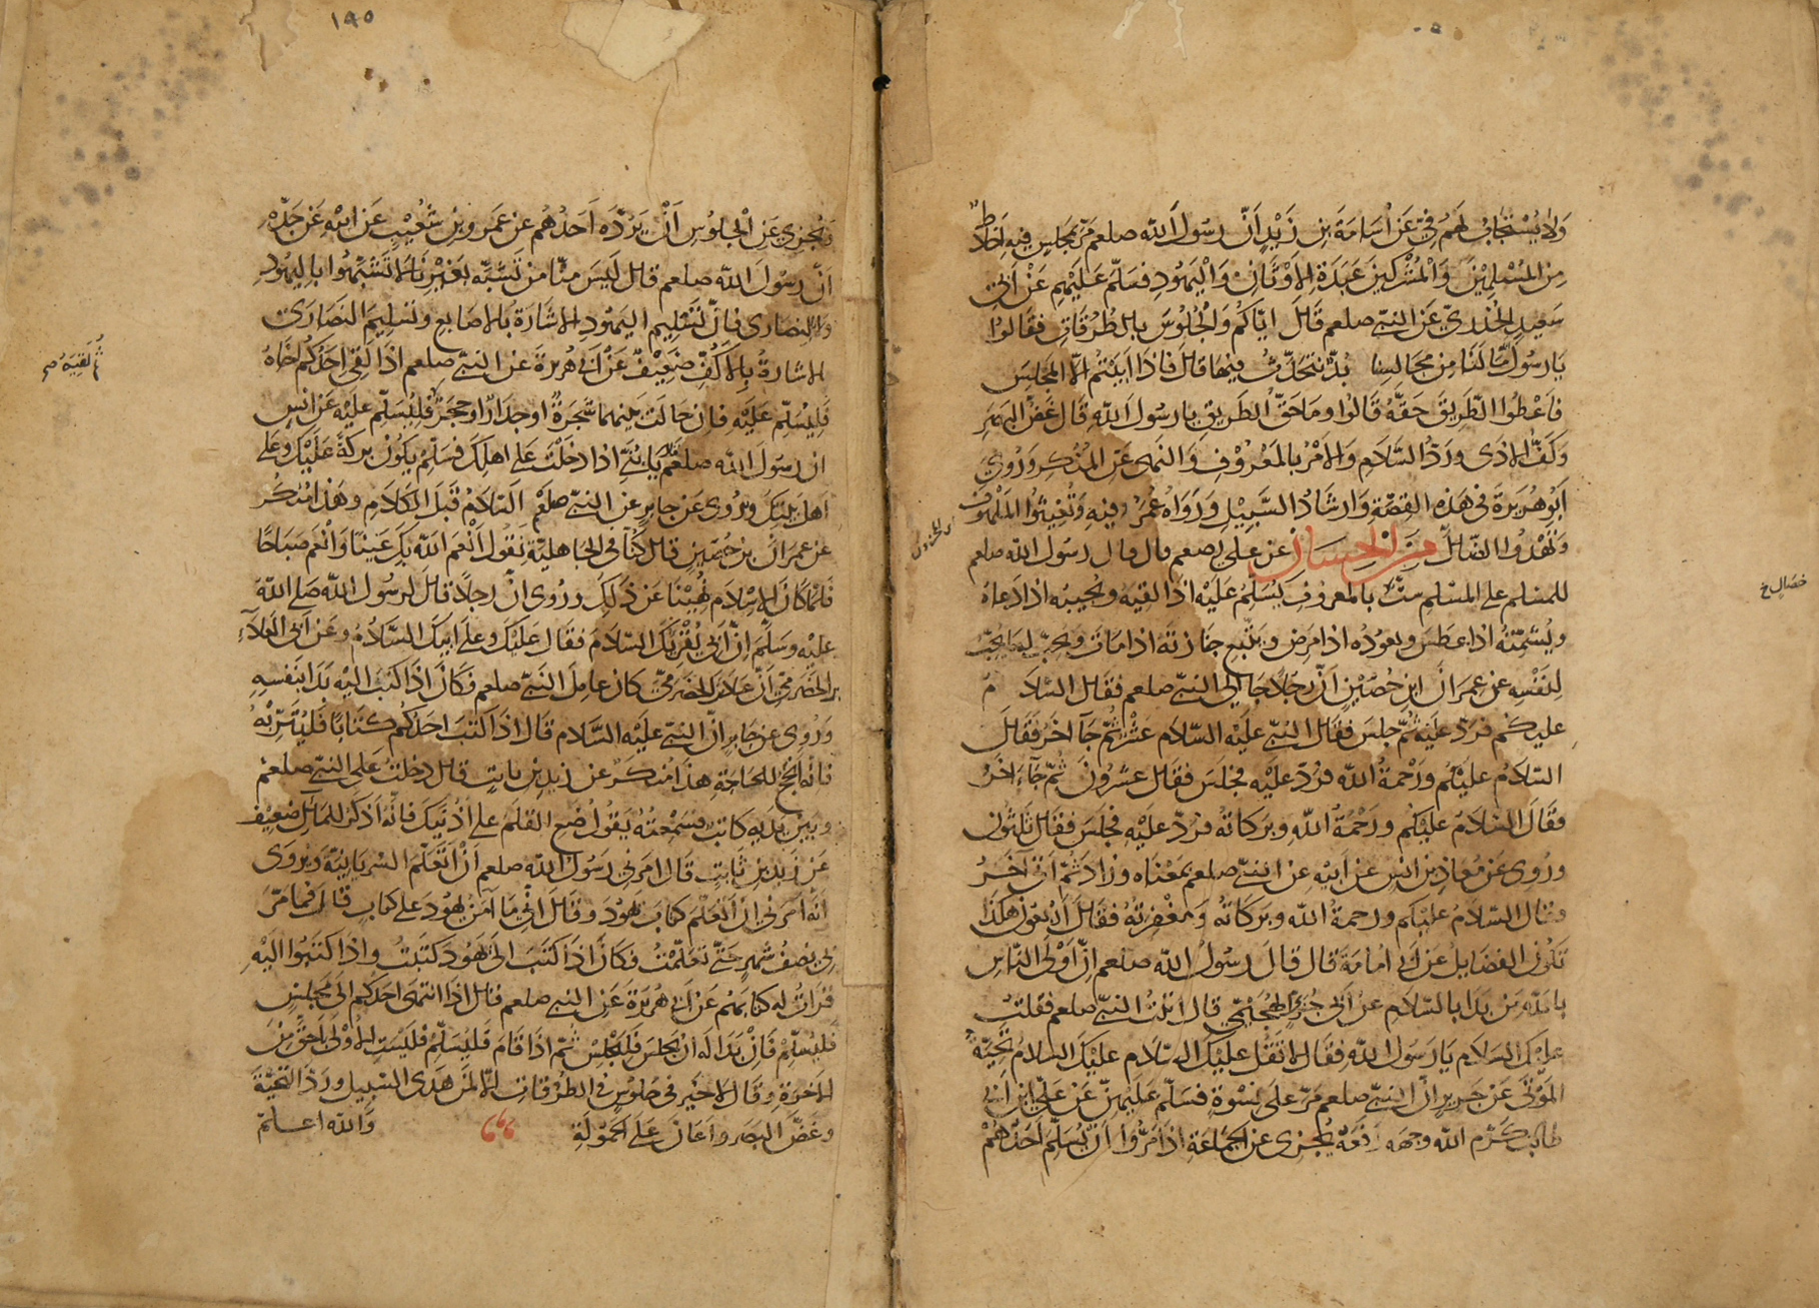 ولا يستجاب لهم فيّ عن أسامة بن زيد أنّ رسول الله صلعم مرّ بمجلس فيه اخلاط
من المسلمين والمشركين عبدة الاوثان واليهود فسلّم عليهم عن ابي
سعيد الخدري عن النبيّ صلعم قال ايّاكم والجلوس بالطرقات فقالوا
يا رسول الله ما لنا من مجالسنا بدّ نتحدّث فيها قال فاذا ابيتم الّا المجلس
فاعطوا الطريق حقّه قالوا وما حقّ الطريق يا رسول الله قال غضّ البصر
وكفّ الاذى وردّ السّلام والامر بالمعروف والنهى عن المنكر وروى
ابو هريرة في هذه القصّة وارشاد السّبيل ورواه عمر وفيه وتغيثوا الملهوف
وتهدوا الضّالّ من الحسان عن علي رضعم قال قال رسول الله صلعم
للمسلم على المسلم ستّ بالمعروف يسلّم عليه اذا لقيه ويجيبه اذا دعاه
ويشمّته اذا عطس ويعوده اذا مرض ويتّبع جنازته اذا مات ويحبّ له ما يحبّ
لنفسه عن عمران ابن حصين انّ رجلا جا الى النبيّ صلعم فقال السّلام
عليكم فردّ عليه ثمّ جلس فقال النبيّ عليه السّلام عشر ثمّ جآ اخر فقال
السّلام عليكم ورحمة الله فردّ عليه فجلس فقال عشرون ثمّ جآء اخر
فقال السّلام عليكم ورحمة الله وبركاته فردّ عليه فجلس فقال ثلثون
وروى عن معاذ بن انس عن ابيه عن النبيّ صلعم بمعناه وزاد ثمّ اتى آخر
فقال السّلام عليكم ورحمة الله وبركاته ومغفرته فقال اربعون هكذا
تكون الفضايل عن ابي امامة قال قال رسول الله صلعم انّ اولى النّاس
بالله من بدا بالسّلام عن ابي جريّ الهجيمي قال اتيت النبيّ صلعم فقلت
عليك السّلام يا رسول الله فقال لا تقل عليك السّلام عليك السلام تحيّة
الموتى عن جرير انّ النبيّ صلعم مرّ على نسوة فسلّم عليهنّ عن عليّ ابن ابي
طالب كرّم الله وجهه رفعه يجزى عن الجماعة اذا مرّوا ان يسلّم احدهم
خصال خ
١٩٥
ويجزي عن الجلوس ان يردّه احدهم عن عمرو بن شعيب عن ابيه عن جدّه
انّ رسول الله صلعم قال ليس منّا من تشبّه بغيرنا لا تشبّهوا باليهود
ولا النصارى فانّ تسليم اليهود الاشارة بالاصابع وتسليم النصارى
الاشارة بالاكفّ ضعيف عن ابي هريرة عن النبيّ صلعم اذا لقى احدكم اخاه
فليسلّم عليه فان حالت بينهما شجرة او جدار او حجر فليسلّم عليه عن انس
ان رسول الله صلعم قال يا بنيّ اذا دخلت على اهلك فسلّم يكون بركة عليك وعلى
اهل بيتك ويروى عن جابر عن النبيّ صلعم السّلام قبل الكلام وهذا منكر
عن عمران بن حصين قال كنّا في الجاهليّة نقول انعم الله بك عينا وانعم صباحا
فلمّا كان الاسلام نهينا عن ذلك وروى ان رجلا قال لرسول الله صلى الله
عليه وسلّم انّ ابي يقرئك السّلام فقال عليك وعلى ابيك السّلام وعن ابي العلآء
بن الحضرمي انّ علا الحضرميّ كان عامل النبيّ صلعم فكان اذا كتب اليه بدا بنفسه
وروى عن جابر انّ النبيّ عليه السّلام قال اذا كتب احدكم كتابا فليتربه
فانه انجح للحاجة هذا منكر عن زيد بن ثابت قال دخلت على النبيّ صلعم
وبين يديه كاتب فسمعته يقول ضع القلم على اذنيك فانّه اذكر للمآل ضعيف
عن زيد بن ثابت قال امرني رسول الله صلعم ان اتعلّم السريانية ويروى
انه امرني ان اتعلّم كتاب يهود وقال انّي ما آمن يهود على كتاب قال فما مرّ
بي نصف شهر حتّى تعلّمت فكان اذا كتب الى يهود كتبت واذا كتبوا اليه
قرات له كتابهم عن ابي هريرة عن النبيّ صلعم قال اذا انتهى احدكم الى مجلس
فليسلّم فان بدا له ان يجلس فليجلس ثمّ اذا قام فليسلّم فليست الاولى باحقّ من
الاخرة وقال لا خير في جلوس في الطرقات الّا لمن هدى السّبيل وردّ التحيّة
وغضّ البصر واعان على الحمولة والله اعلم
ثم لقيه صح